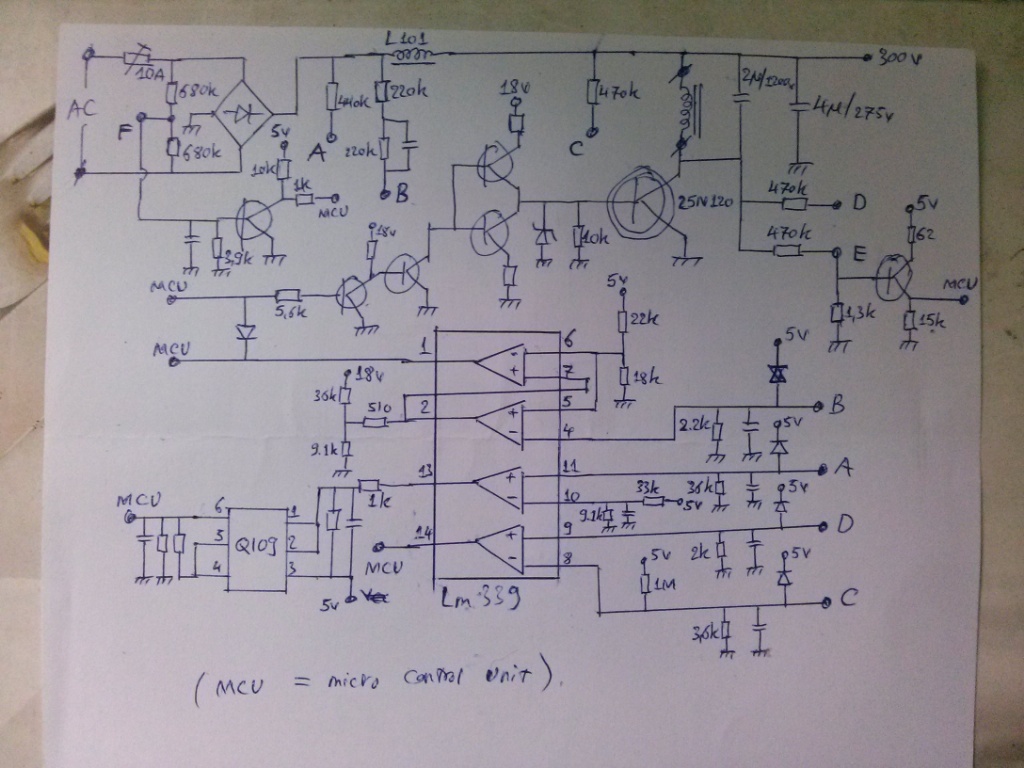 L101
300v
10A
AC
680k
680k
F
440k
220k
220k
A
B
18v
470k
C
2µ/1200v
4µ/275v
5v
10k
1k
MCU
3,9k
18v
10k
25N120
470k
D
470k
E
5v
62
MCU
1,3k
15k
MCU
5,6k
MCU
5v
22k
18k
1
6
7
2
5
4
18v
36k
510
9.1k
5V
B
2.2k
5V
A
13
11
1k
10
36k
33k
5v
9.1k
5v
D
14
9
8
2k
MCU
6
5
4
Q109
1
2
3
5v
MCU
Lm339
5v
1M
5v
C
3,6k
(MCU = micro control unit).